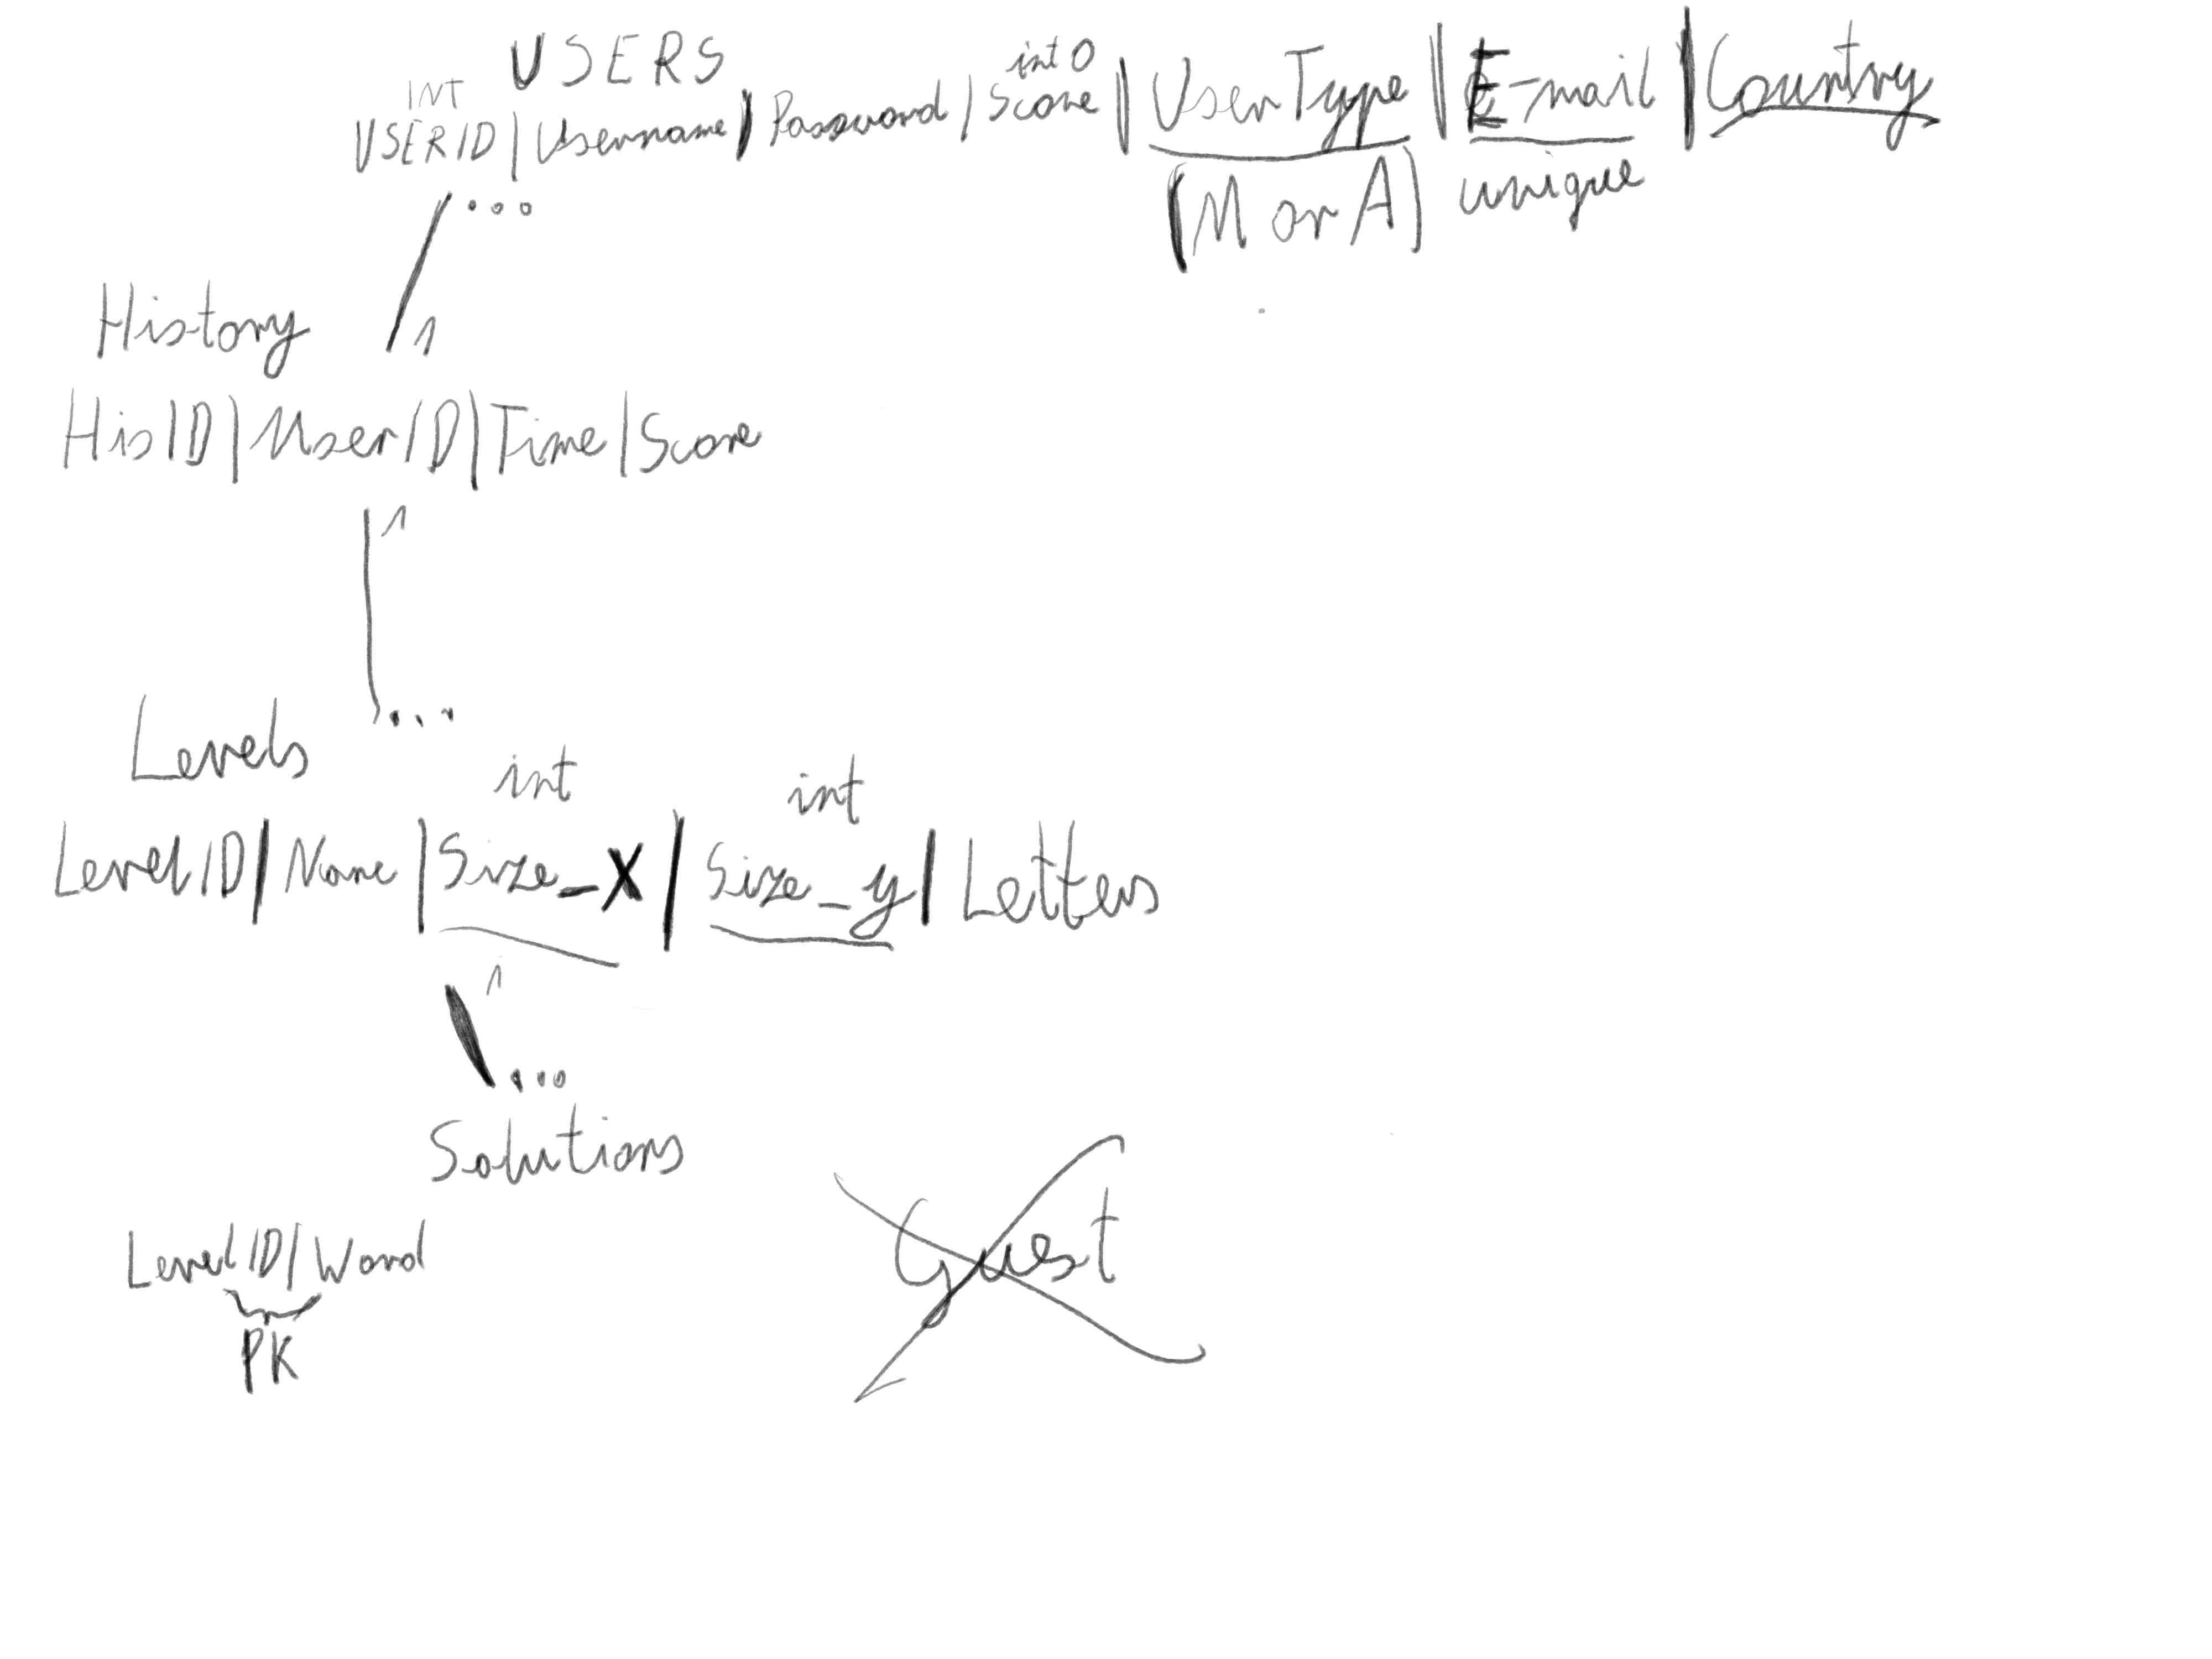 USERS
INT
int 0
USERID | Username | Password | Score | UserType | E-mail | Country
(M or A)
unique
...
1
History
HisID | UserID | Time | Score
1
...
Levels
int
int
LevelID | Name | Size_X | Size_y | Letters
1
...
Solutions
LevelID | Word
PK
Guest